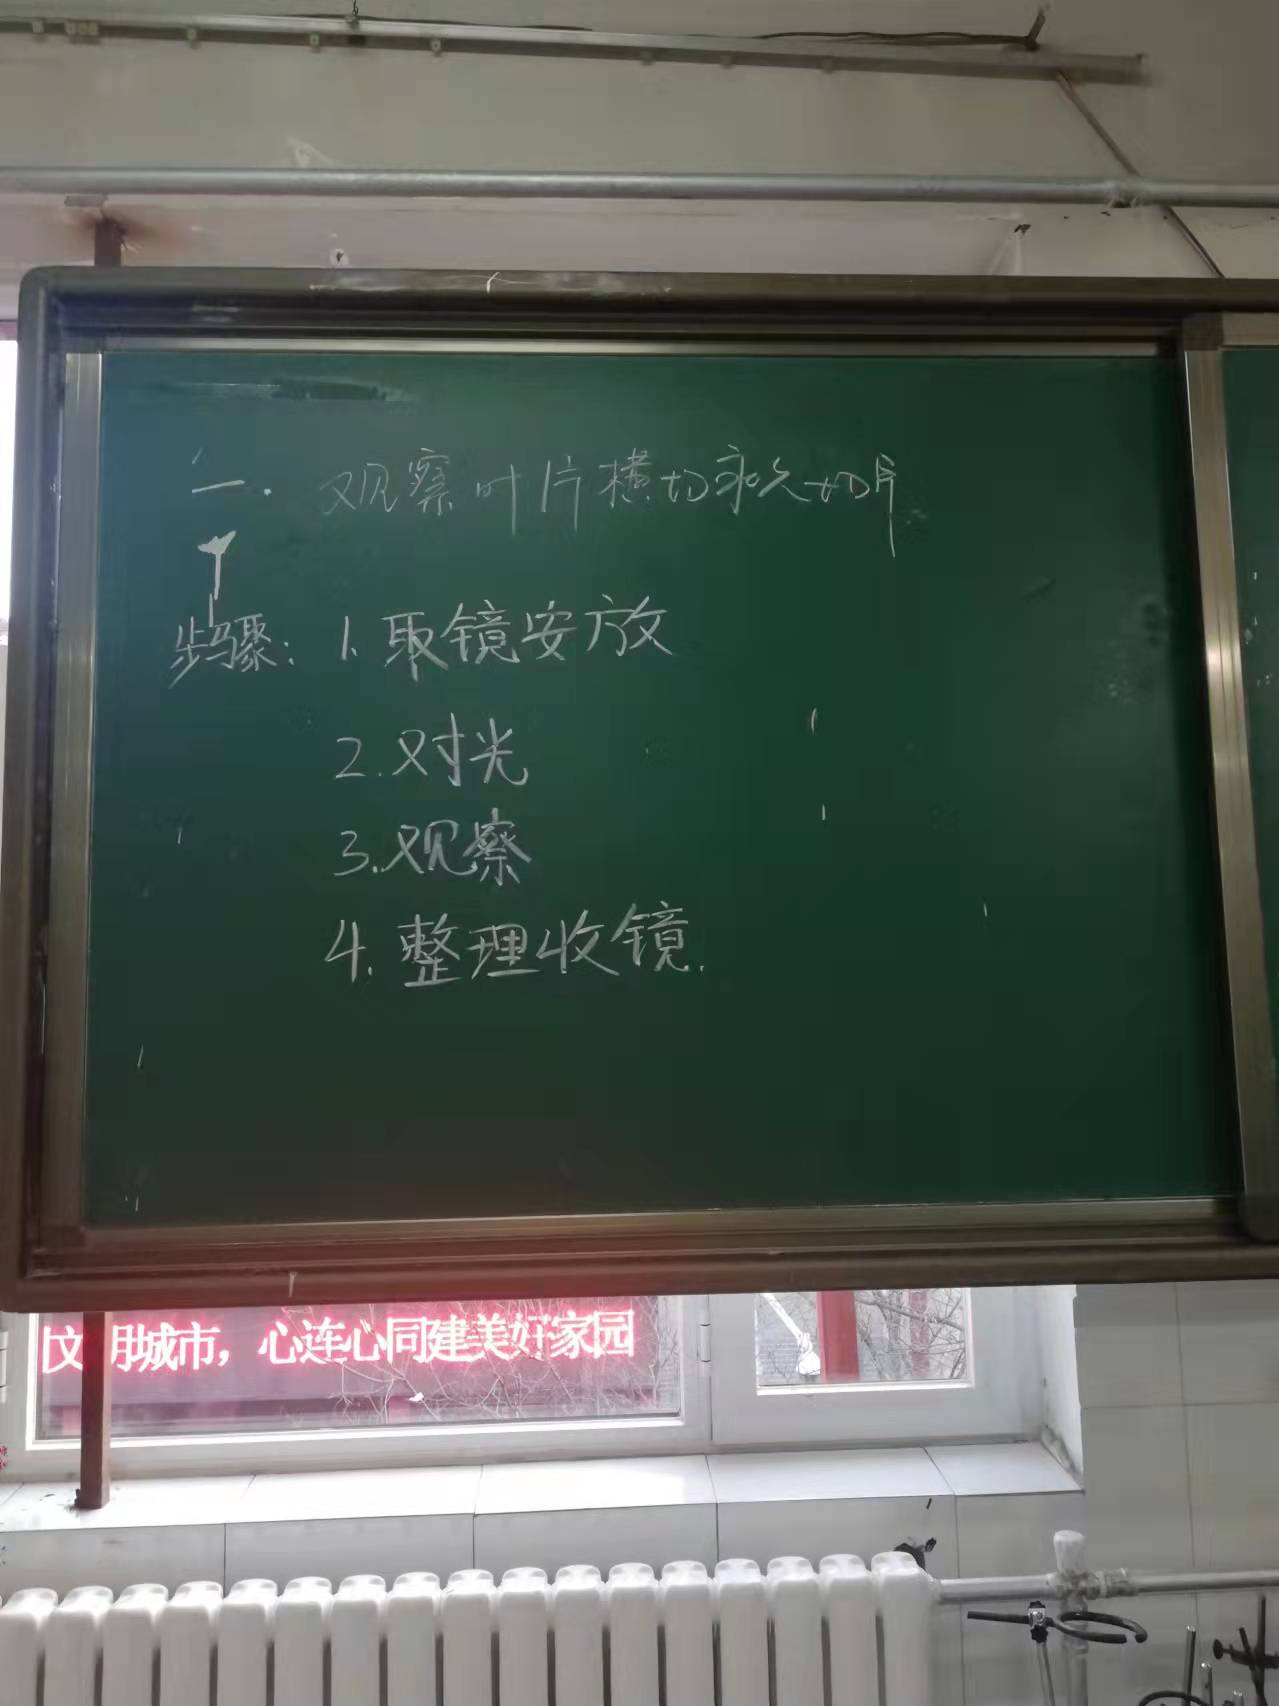 一. 观察叶片横切永久切片
步骤: 1. 取镜安放
2. 对光
3. 观察
4. 整理收镜.
文明城市，心连心同建美好家园